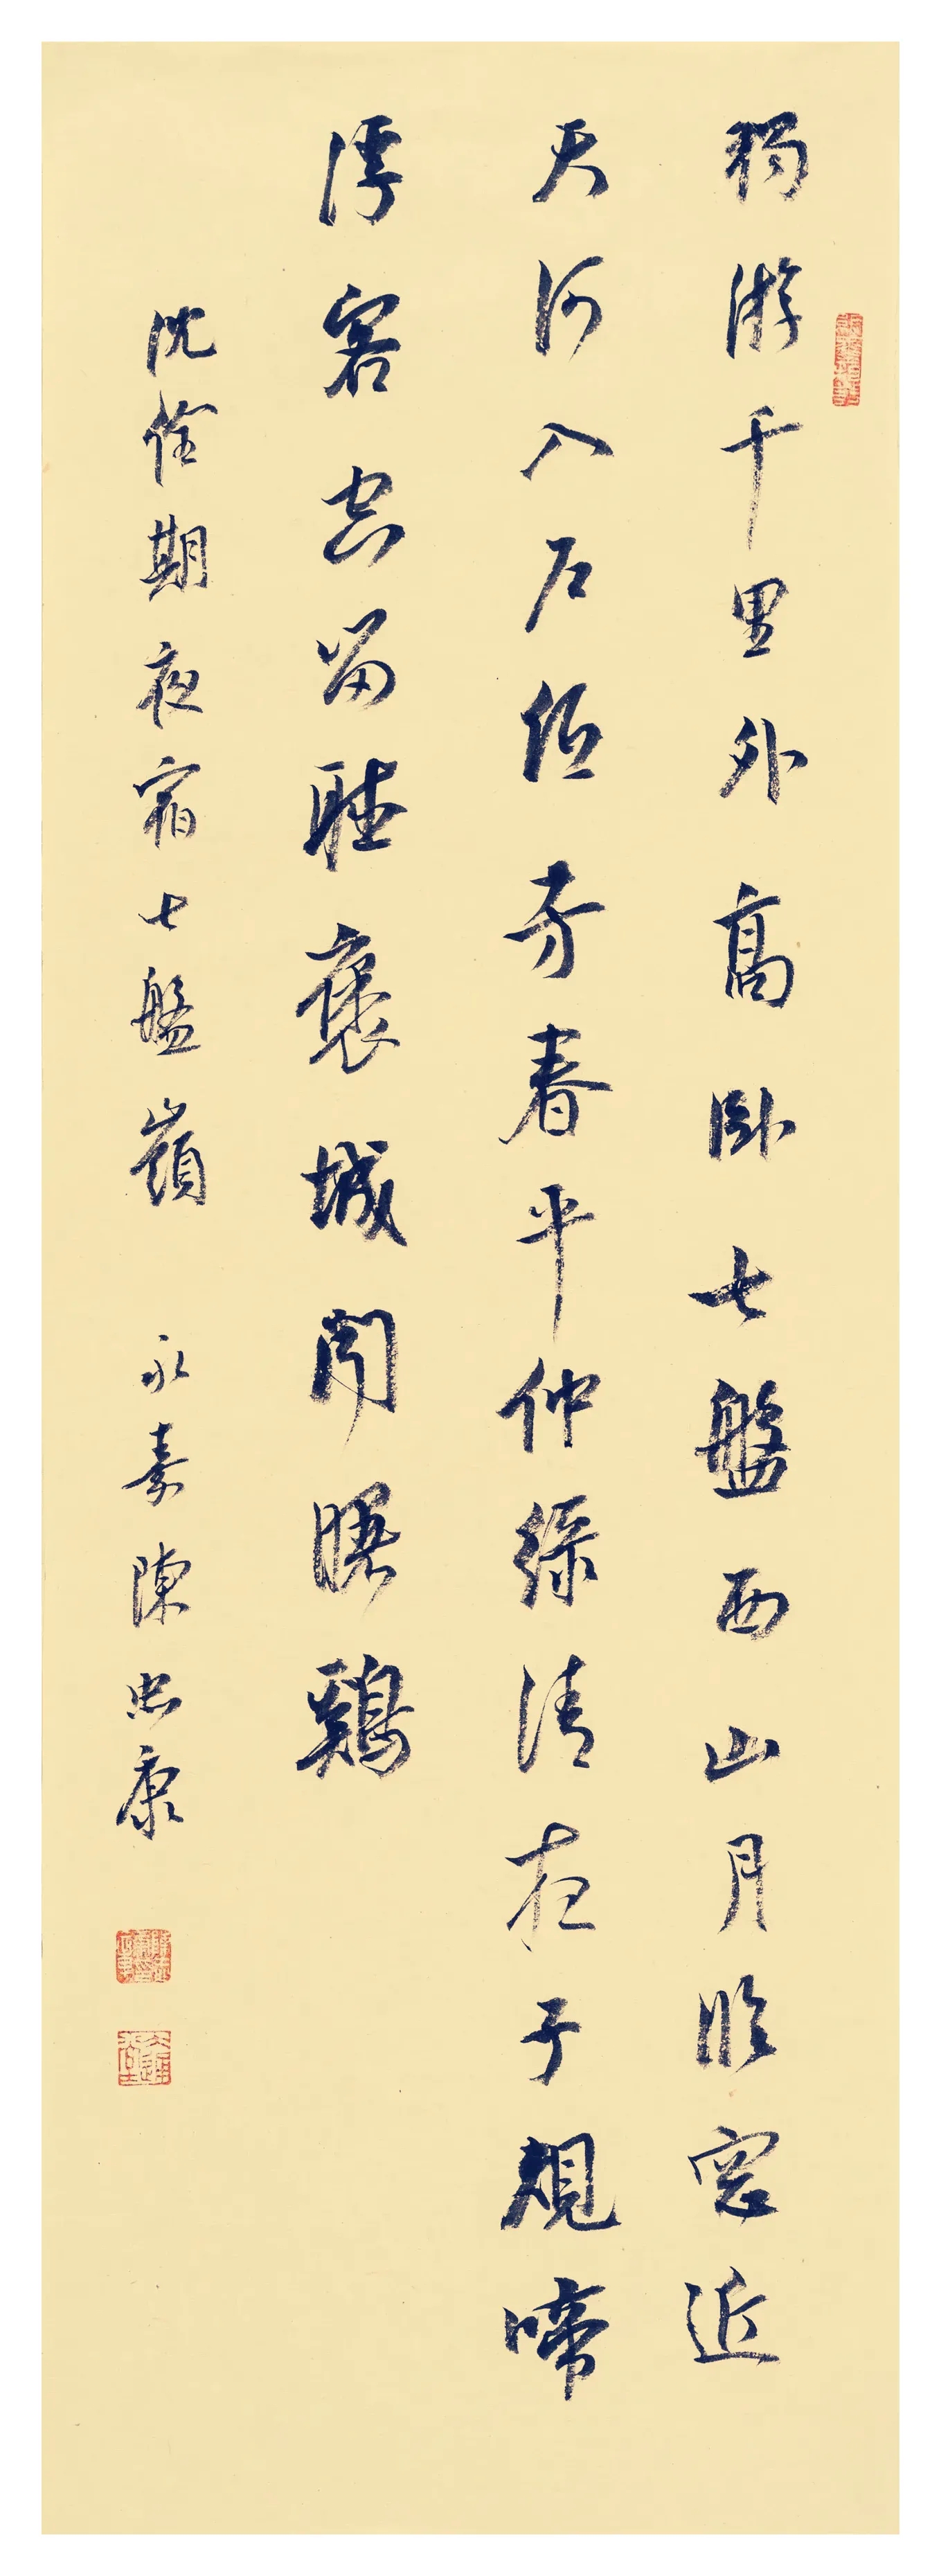 獨游千里外高臥七盤西山月臨窓近
天河入戶低芳春平仲綠清夜子規啼
浮客空留聽褒城聞曙鷄
沈佺期夜宿七盤嶺 永嘉陳忠康